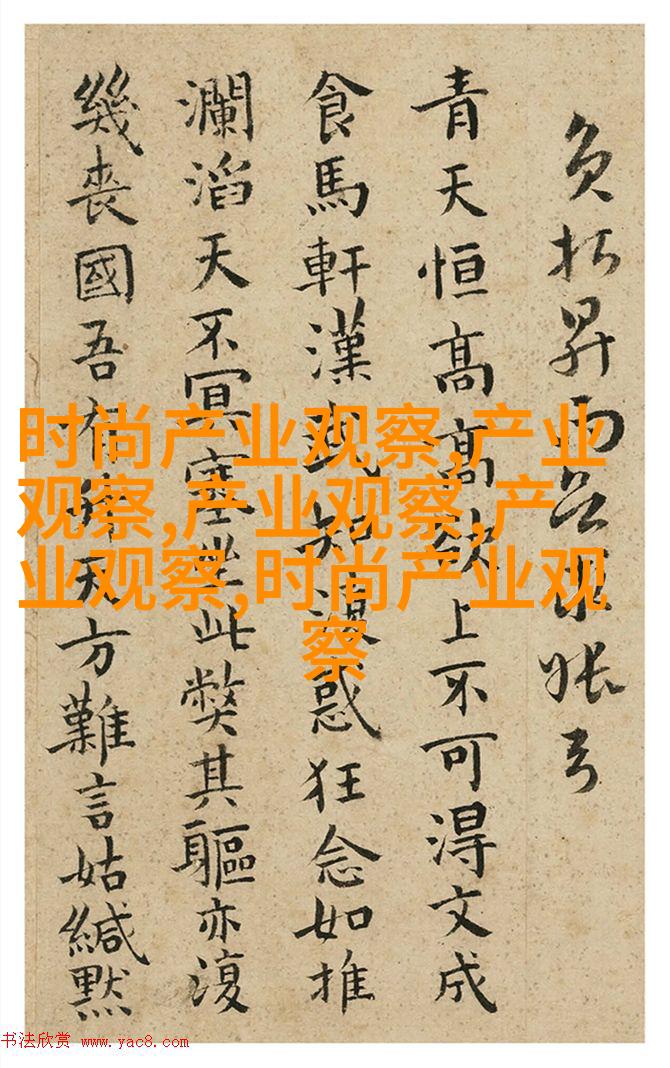 昇而
青天恒高高欲上不可得文成
食馬軒漢武知惑狂念如推
瀾滔天不冥塞坐此弊其軀亦復
幾喪國吾天方難言姑緘默
时尚产业观察,产业
观察,产业观察,产
业观察,时尚产业观
察
书法欣赏 www.yac8.com